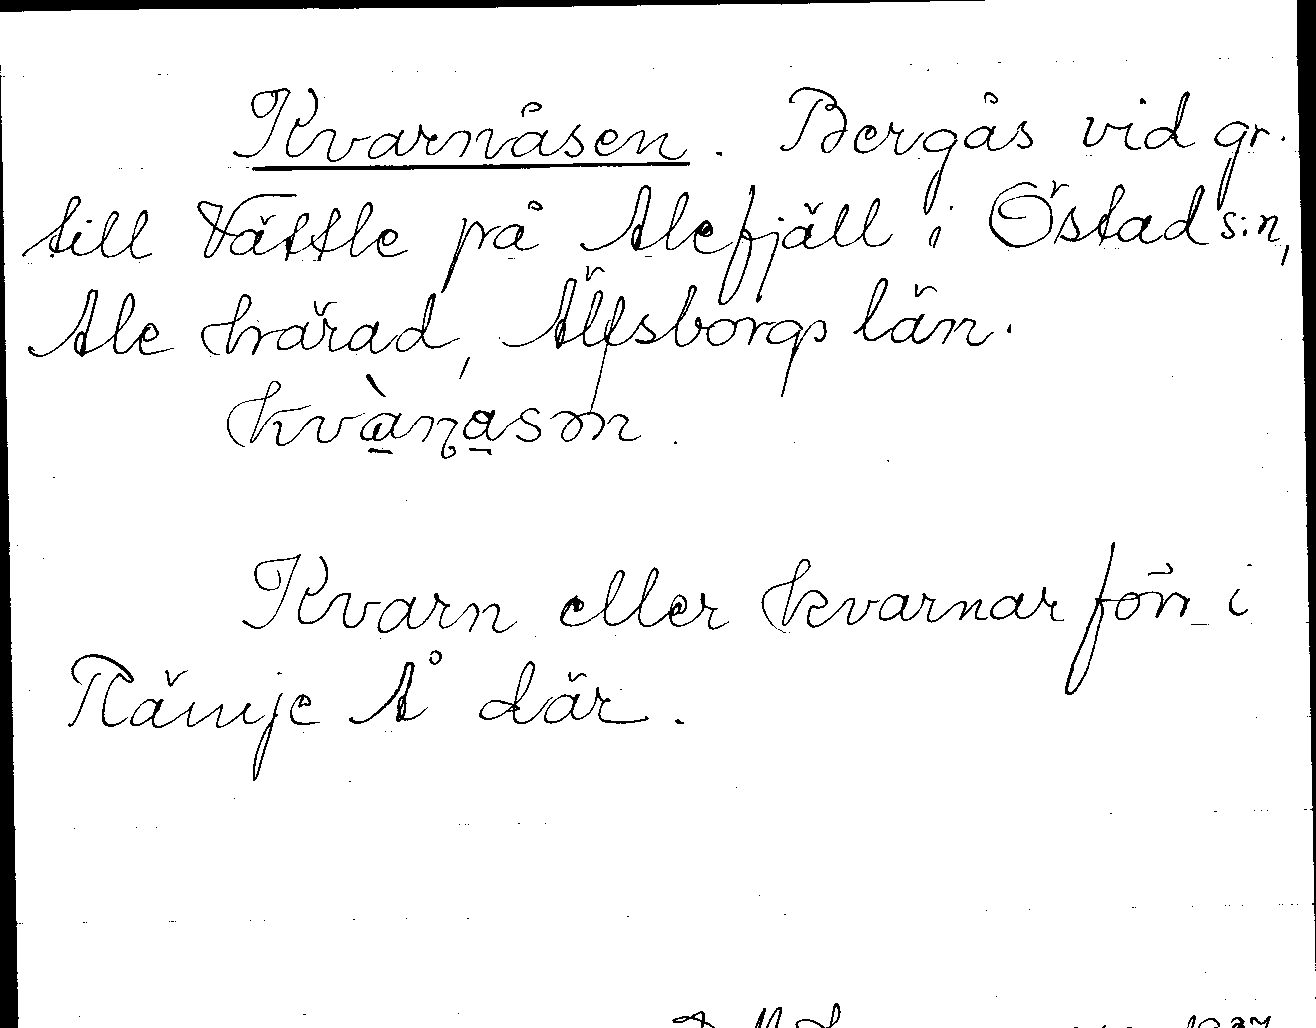 Kvarnåsen. Bergås vid gr.
till Vättle på Alefjäll i Östad s:n,
Ale härad, Älfsborgs län.
kvànasɷn.
Kvarn eller kvarnar förr i
Å där.